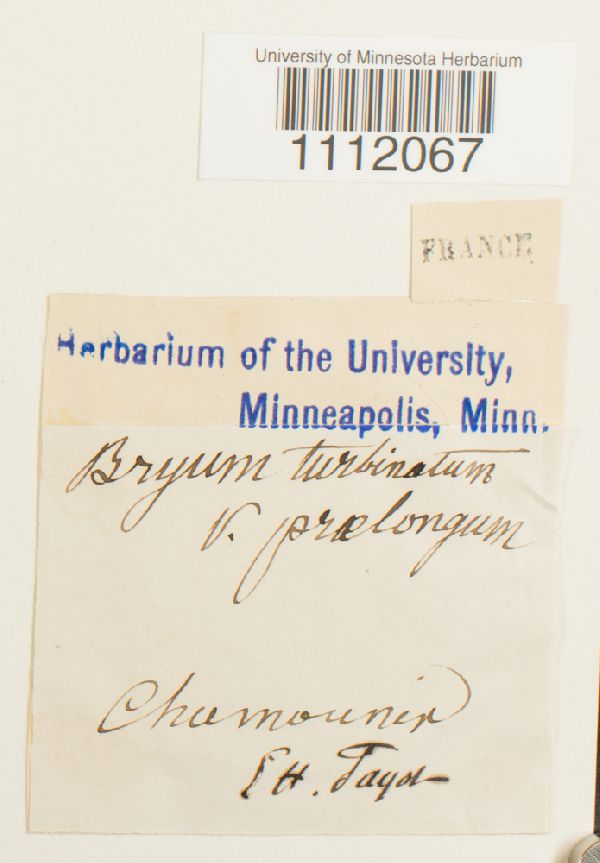 University of Minnesota Herbarium
1112067
FRANCE
Herbarium of the University,
Minneapolis, Minn.
Bryum turbinatum
v. prælongum
Chamounix
H.